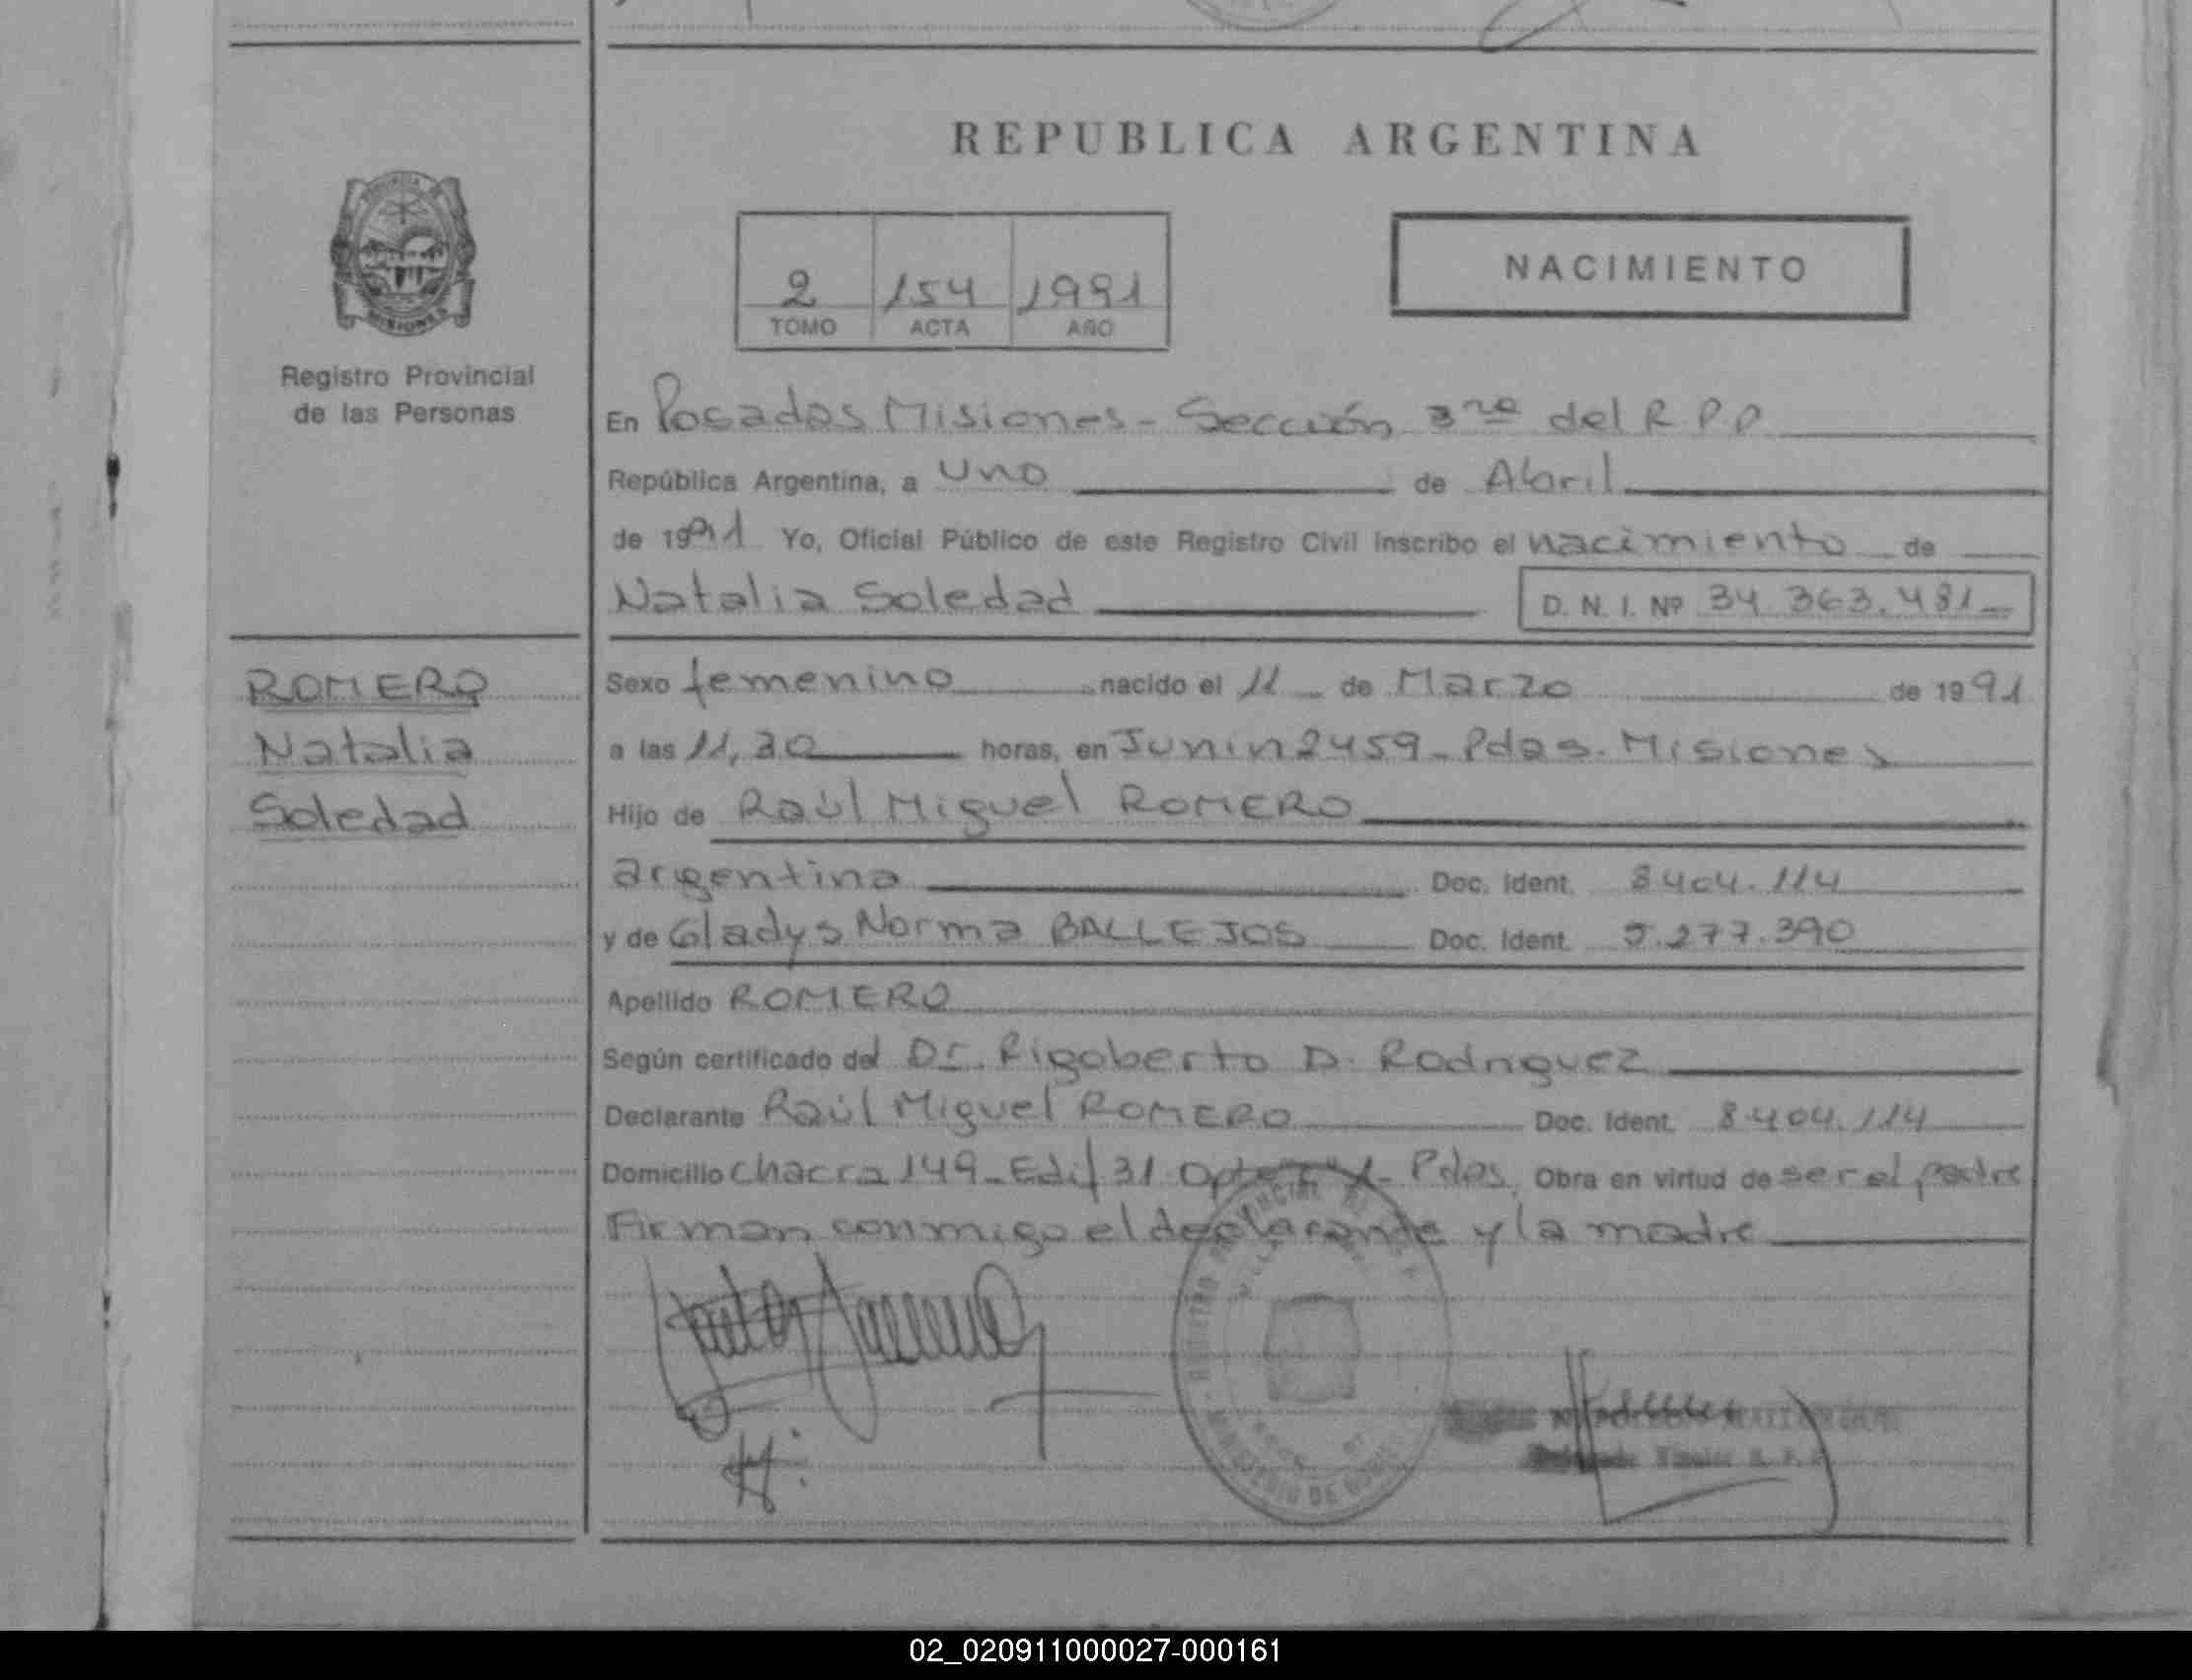 REPUBLICA ARGENTINA
PROVINCIA DE
MISIONES
Registro Provincial
de las Personas
2 154 1991
TOMO ACTA AÑO
NACIMIENTO
En Posadas Misiones - Sección 3ra del R.P.P
República Argentina, a uno de Abril
de 1991 Yo, Oficial Público de este Registro Civil inscribo el nacimiento de
Natalia Soledad D. N. I. Nº 34.363.481
ROMERO
Natalia
Soledad
Sexo femenino nacido el 11 de Marzo de 1991
a las 11,30 horas, en Junin 2459 - Pdas. Misiones
Hijo de Raúl Miguel ROMERO
argentina Doc. Ident. 8404.114
y de Gladys Norma BALLEJOS Doc. Ident. 5.277.390
Apellido ROMERO
Según certificado del Dr. Rigoberto D. Rodriguez
Declarante Raúl Miguel ROMERO Doc. Ident. 8404.114
Domicilio Chacra 149 - Edif 31 Pdas, Obra en virtud de ser el padre
Firman conmigo el declarante y la madre
MINISTERIO DE
02_020911000027-000161